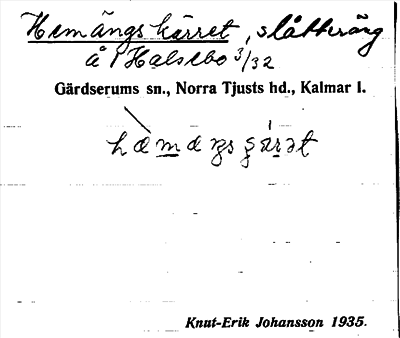 Hemängskärret, slåtteräng
å Halsebo 3/32
Gärdserums sn., Norra Tjusts hd., Kalmar l.
Knut-Erik Johansson 1935.